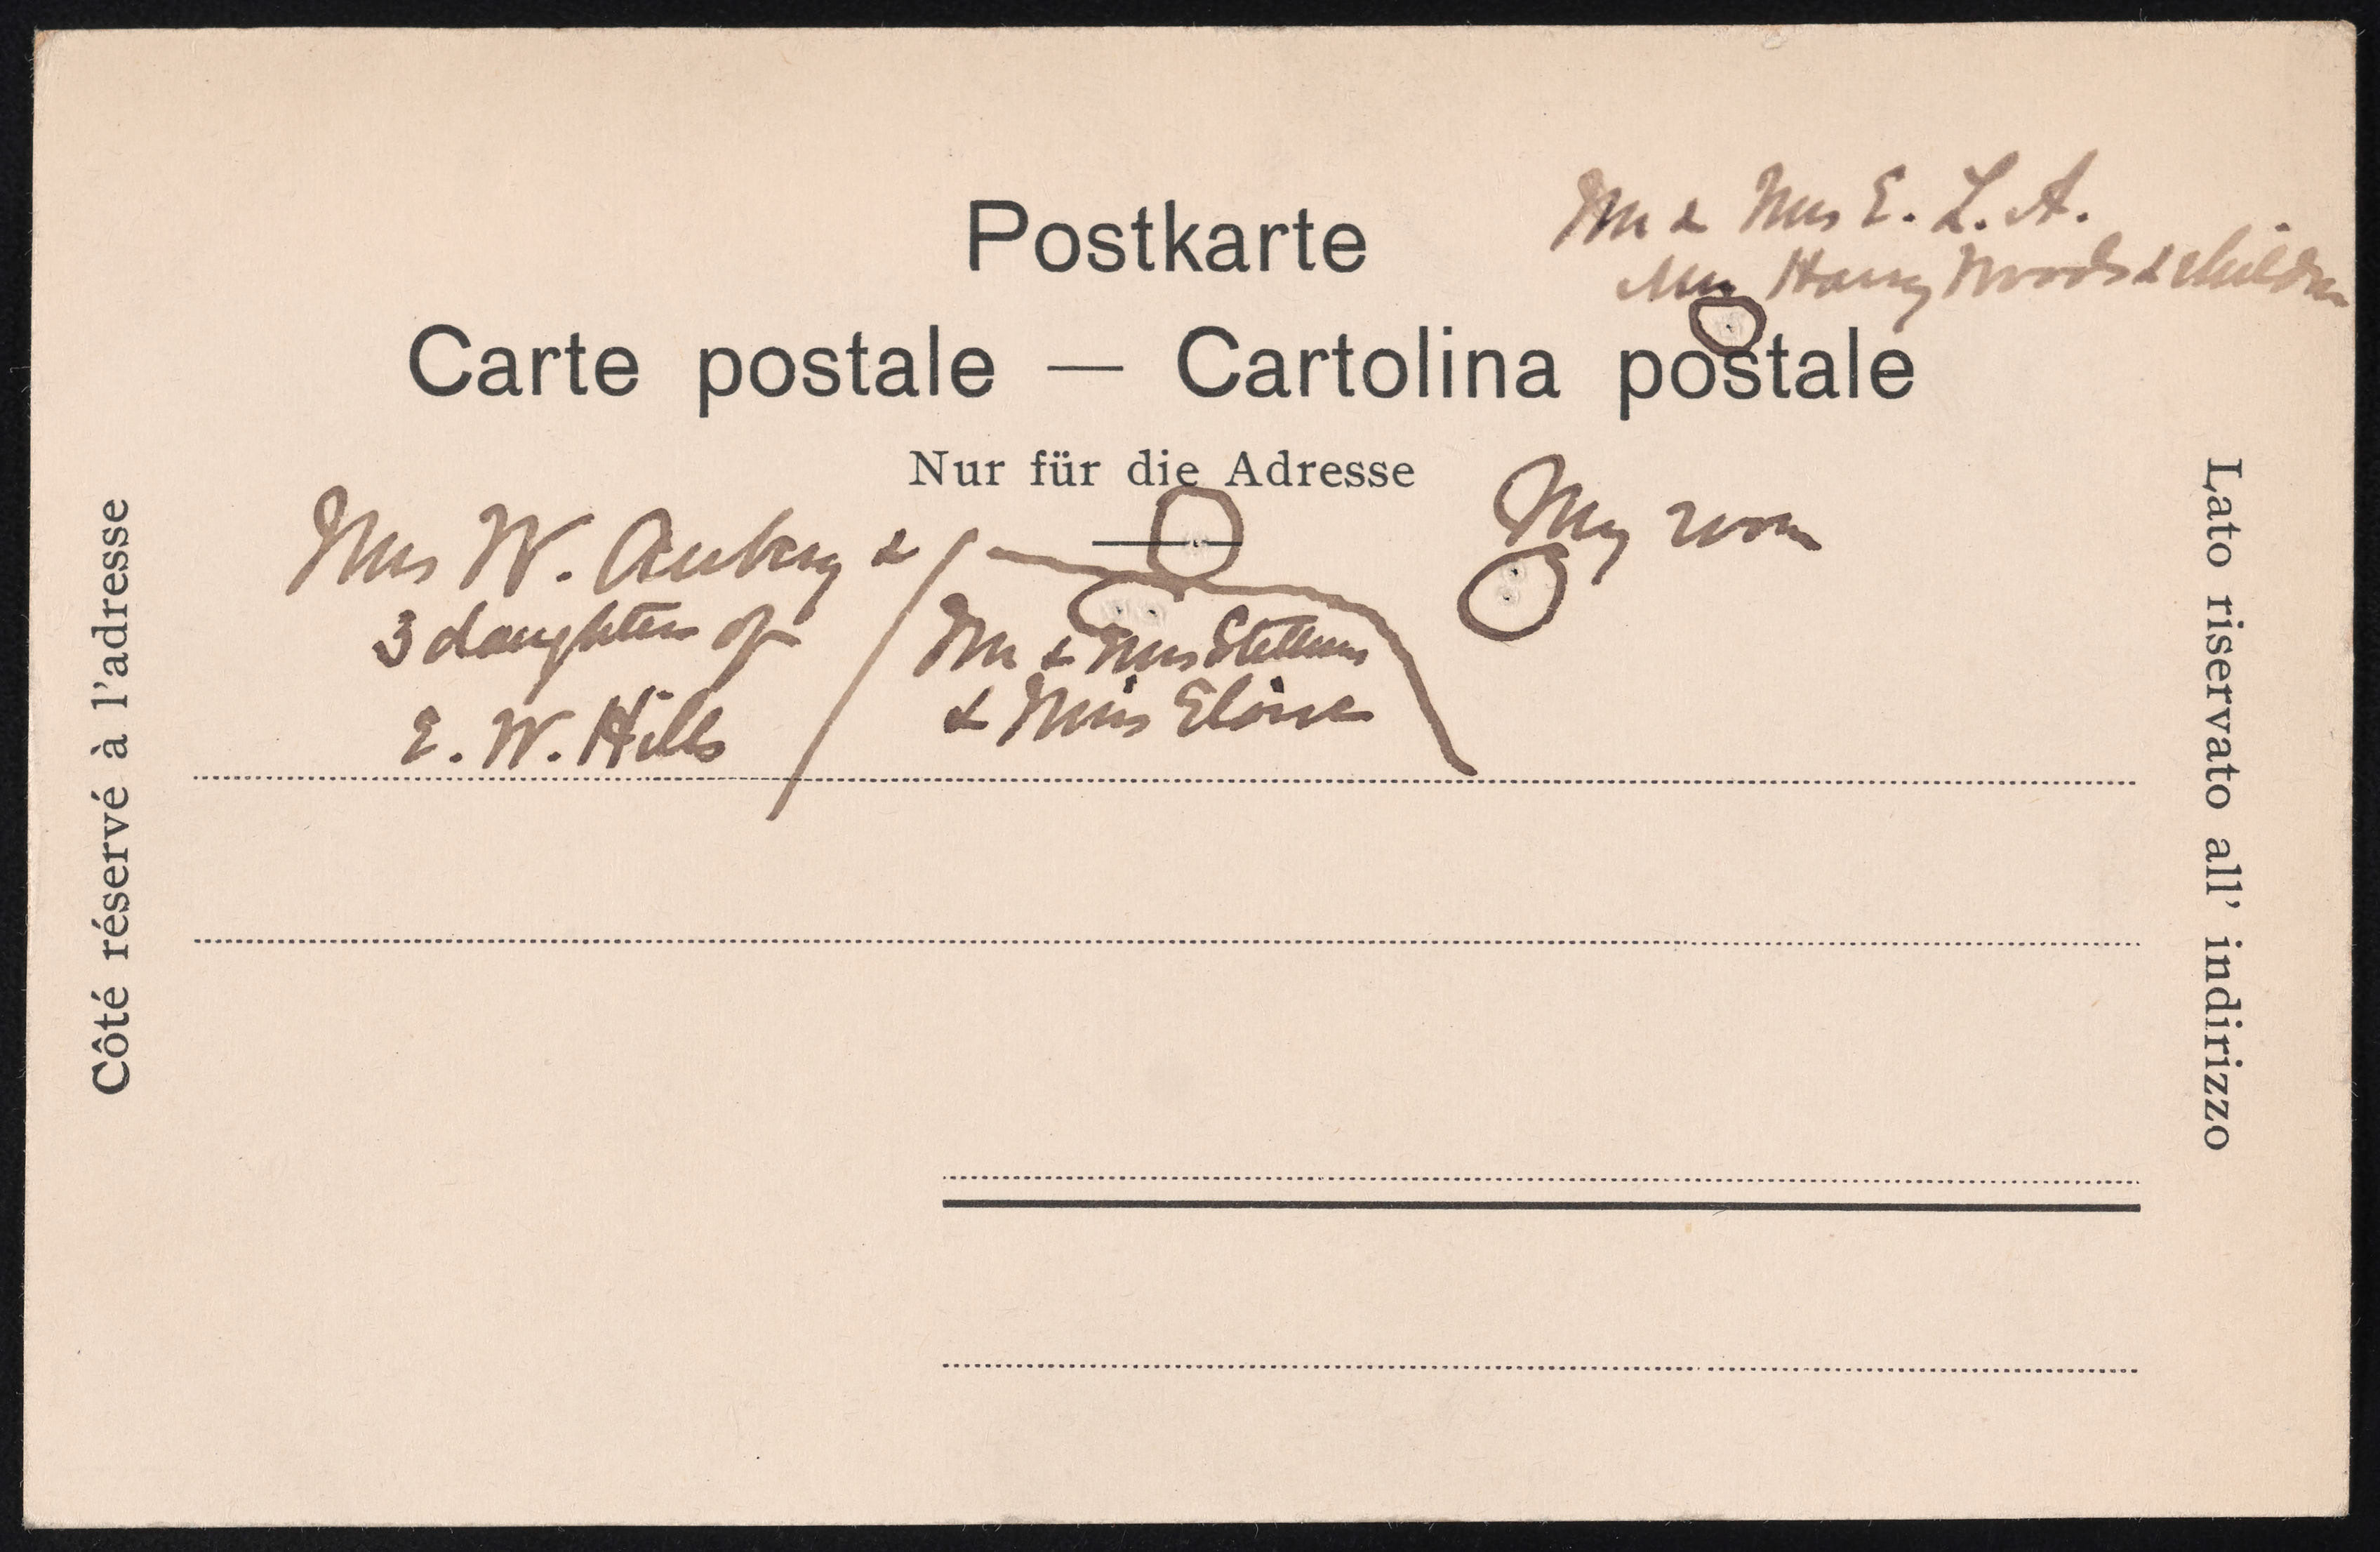 Mr & Mrs E. L. A.
Mrs Harry Woods & children
Postkarte
Carte postale — Cartolina postale
Nur für die Adresse
My room
Mrs W. Aubrey &
3 daughters of
E. W. Hills
Mr & Mrs
& Miss Eloise
Côté réservé à l'adresse
Lato riservato all' indirizzo